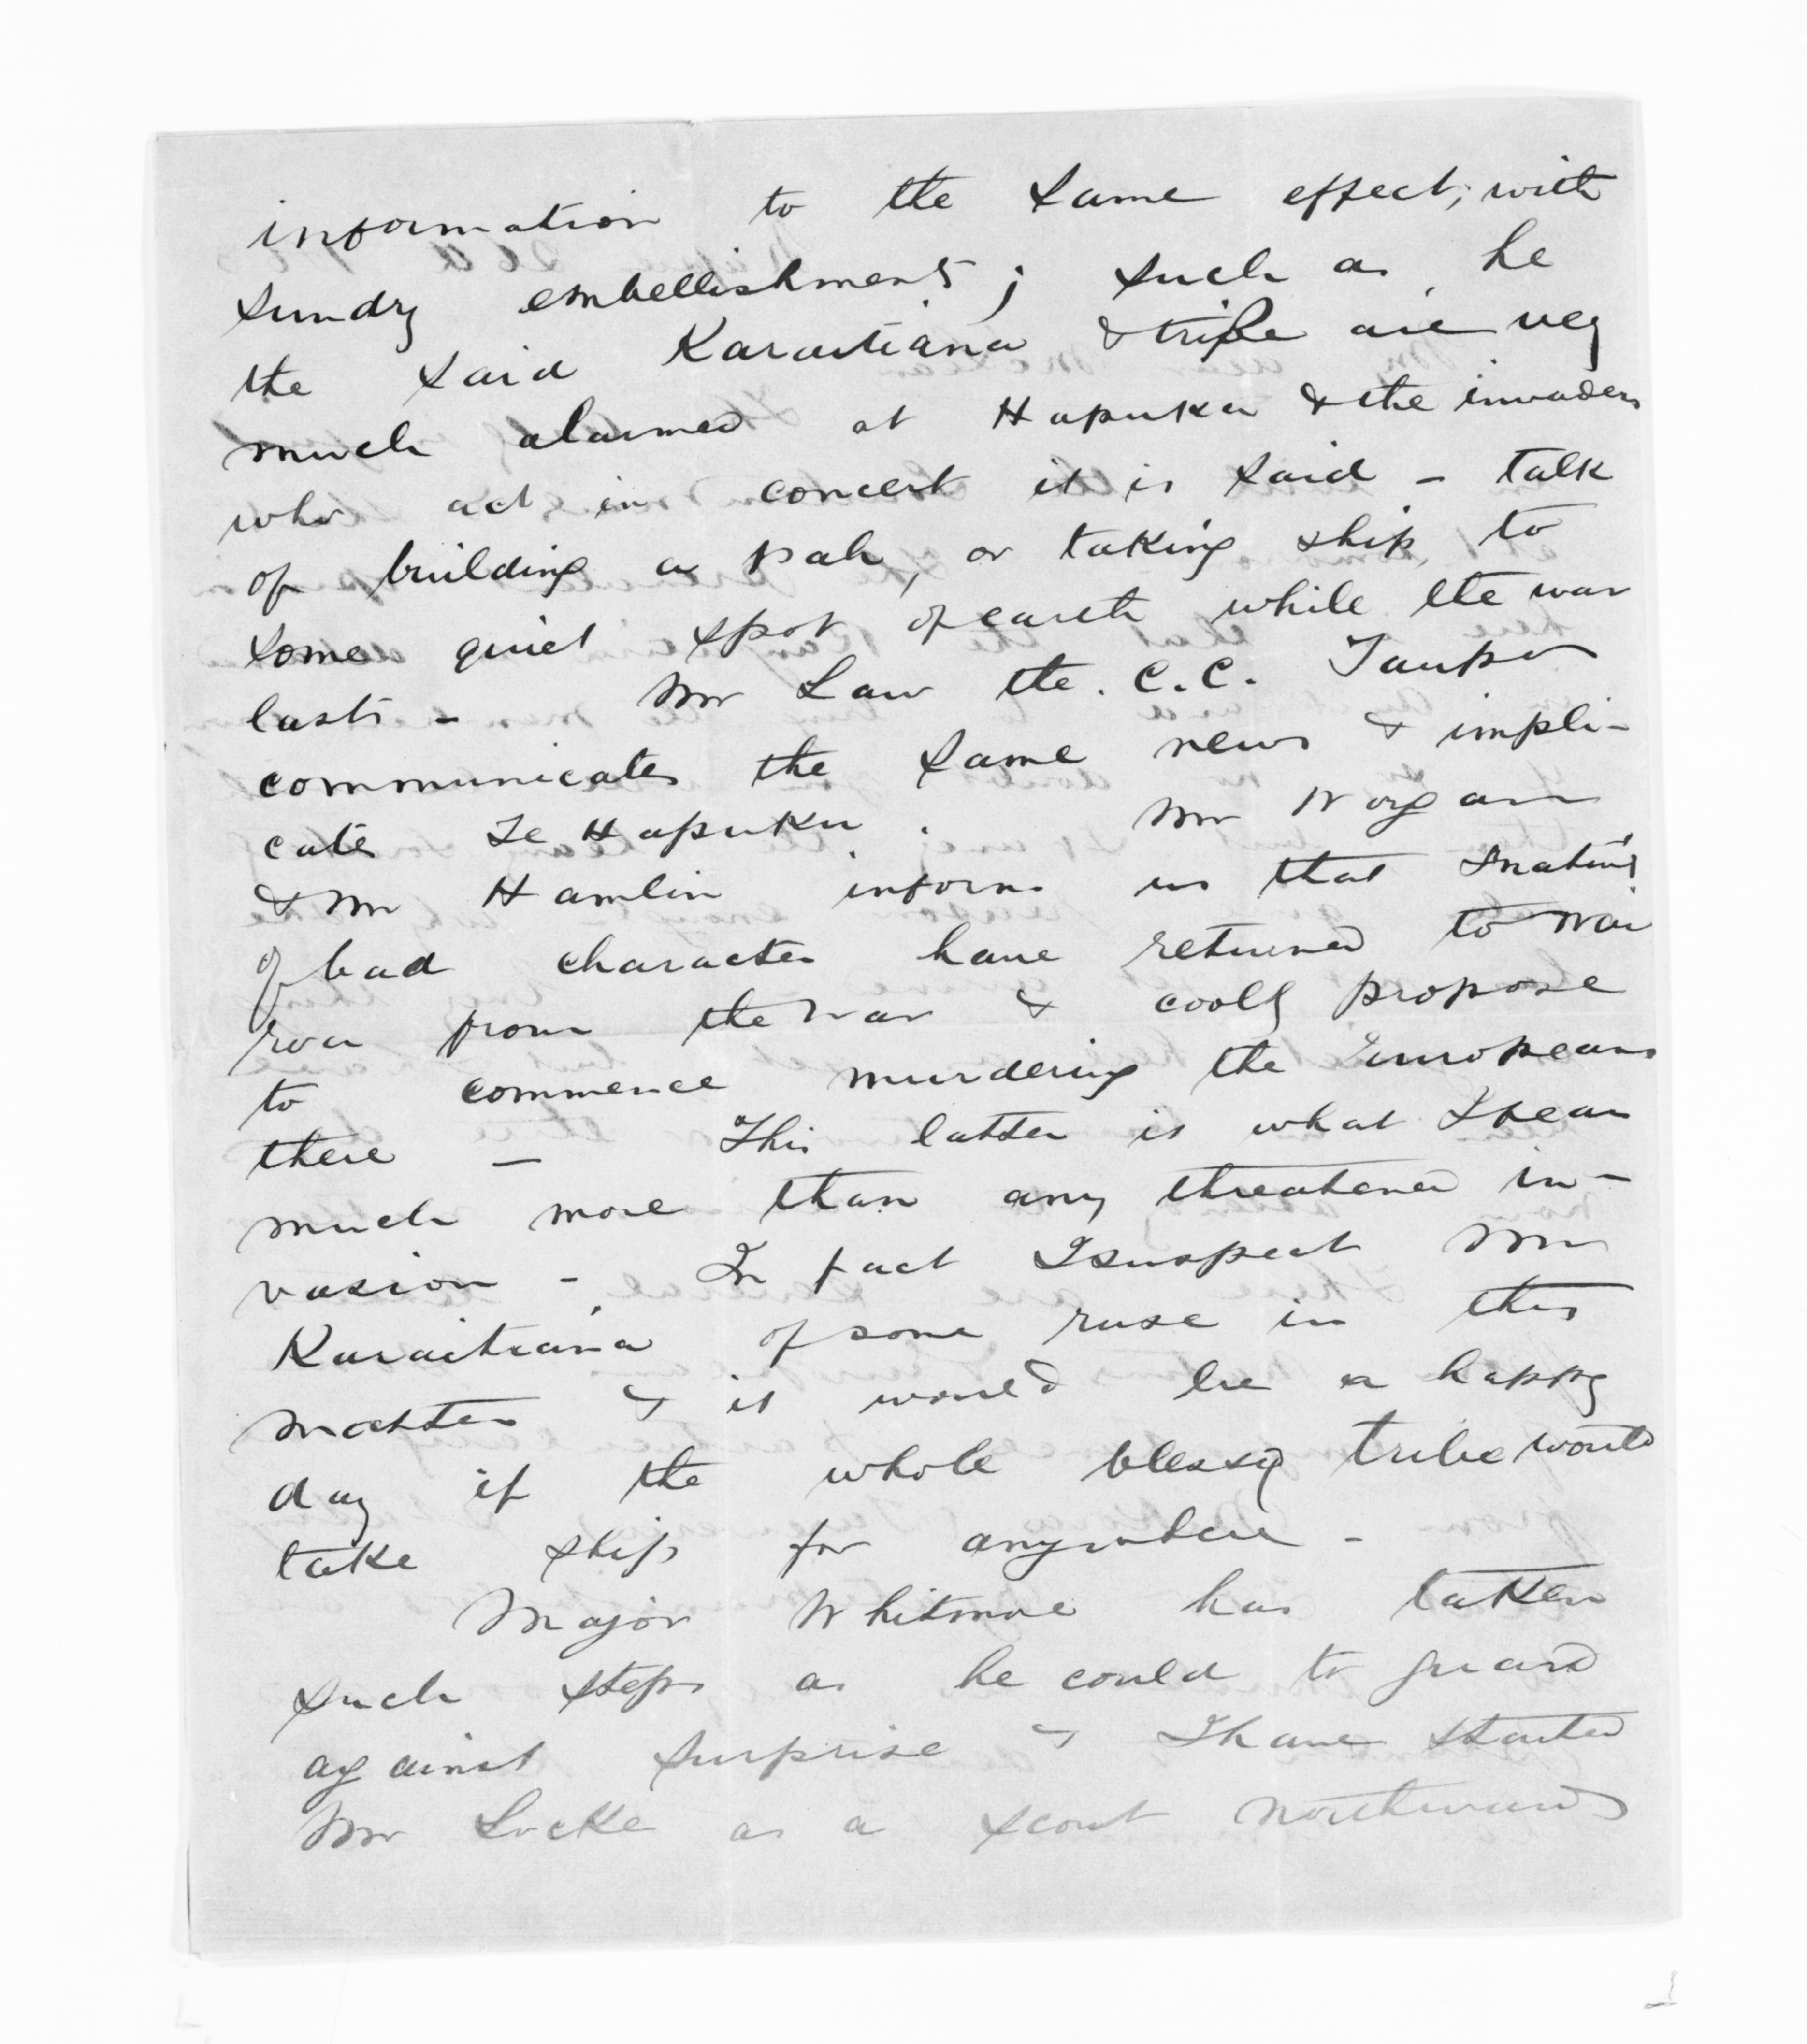 information to the same effect, with
sundry embellishments; such as, he
the said Karaitiana & tribe are very
much alarmed at Hapuku & the invaders
who act in concert it is said - talk
of building a pah, or taking ship, to
some quiet spot of earth while the war
lasts - Mr Law the. C.C. Taupo
communicates the same news & impli-
cates Te Hapuku. Mr Worgan
& Mr Hamlin inform us that Natives
of bad character have returned to Wai
roa from the War & cooly propose
to commence murdering the Europeans
there - This latter is what I fear
much more than any threatened in-
vasion - In fact I suspect Mr
Karaitiana of some ruse in this
matter & it would be a happy
day if the whole blessed tribe would
take ship for anywhere -
Major Whitmore has taken
such steps as he could to guard
against surprise & I have started
Mr Locke as a scout northwards